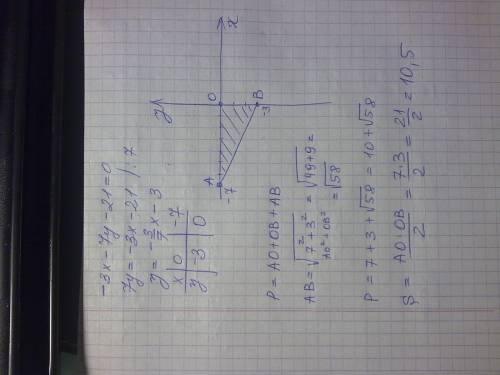 -3x-7y-21=0
7y=-3x-21 /:7
y=-3/7x-3
x 0 -7
y -3 0
y
x
O
A
-7
B
-3
P=AO+OB+AB
AB=√7²+3² = √49+9 =
AO²+OB² = √58
P=7+3+√58=10+√58
S=AO·OB/2=7·3/2=21/2=10,5